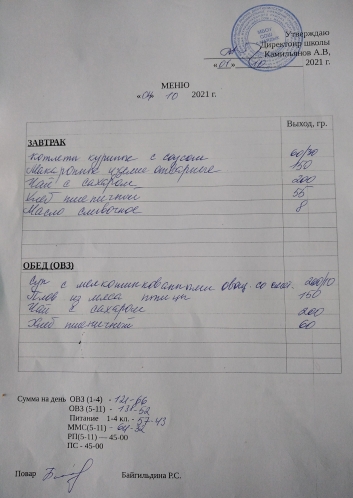 Утверждаю
Директоир школы
Камильянов А.В,
«01» 10 2021 г.
МЕНЮ
« 10 2021 г.
Выход, гр.
ЗАВТРАК
Котлета куриные с соусом 60/30
Макаронные изделие отварные 150
Чай с сахаром 200
Хлеб пшеничный 55
Масло сливочное 8
ОБЕД (ОВЗ)
Суп с мелкошинкованными овощ со смет. 200/10
Плов из мяса птицы 150
Чай с сахаром 200
Хлеб пшеничный 60
Сумма на день ОВЗ (1-4) - 121-66
ОВЗ (5-11) - 131-52
Питание 1-4 кл. - 57-43
ММС(5-11) - 64-32
РП(5-11) — 45-00
ПС - 45-00
Повар Байгильдина Р.С.